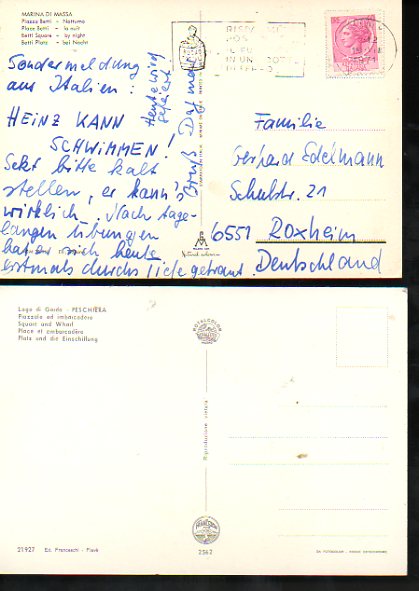 MARINA DI MASSA
Piazza Betti - Notturno
Place Betti - la nuit
Betti Square - by night
Betti Platz - bei Nacht
Sondermeldung
aus Italien:
HEINZ KANN
SCHWIMMEN!
Sekt bitte kalt
stellen, er kann's
wirklich. Nach tage-
langen Übungen
hat er sich heute
erstmals durchs tiefe getraut.
Heute wird
gefeiert
Gruß
Familie
Gerhard Edelmann
Schulstr. 21
6551 Roxheim
Deutschland
Lago di Garda - PESCHIERA
Piazzale ed imbarcadero
Square and Wharf
Place et embarcadère
Platz und die Einschiffung
Riproduzione vietata
21927 Ed. Franceschi - Piave
2562